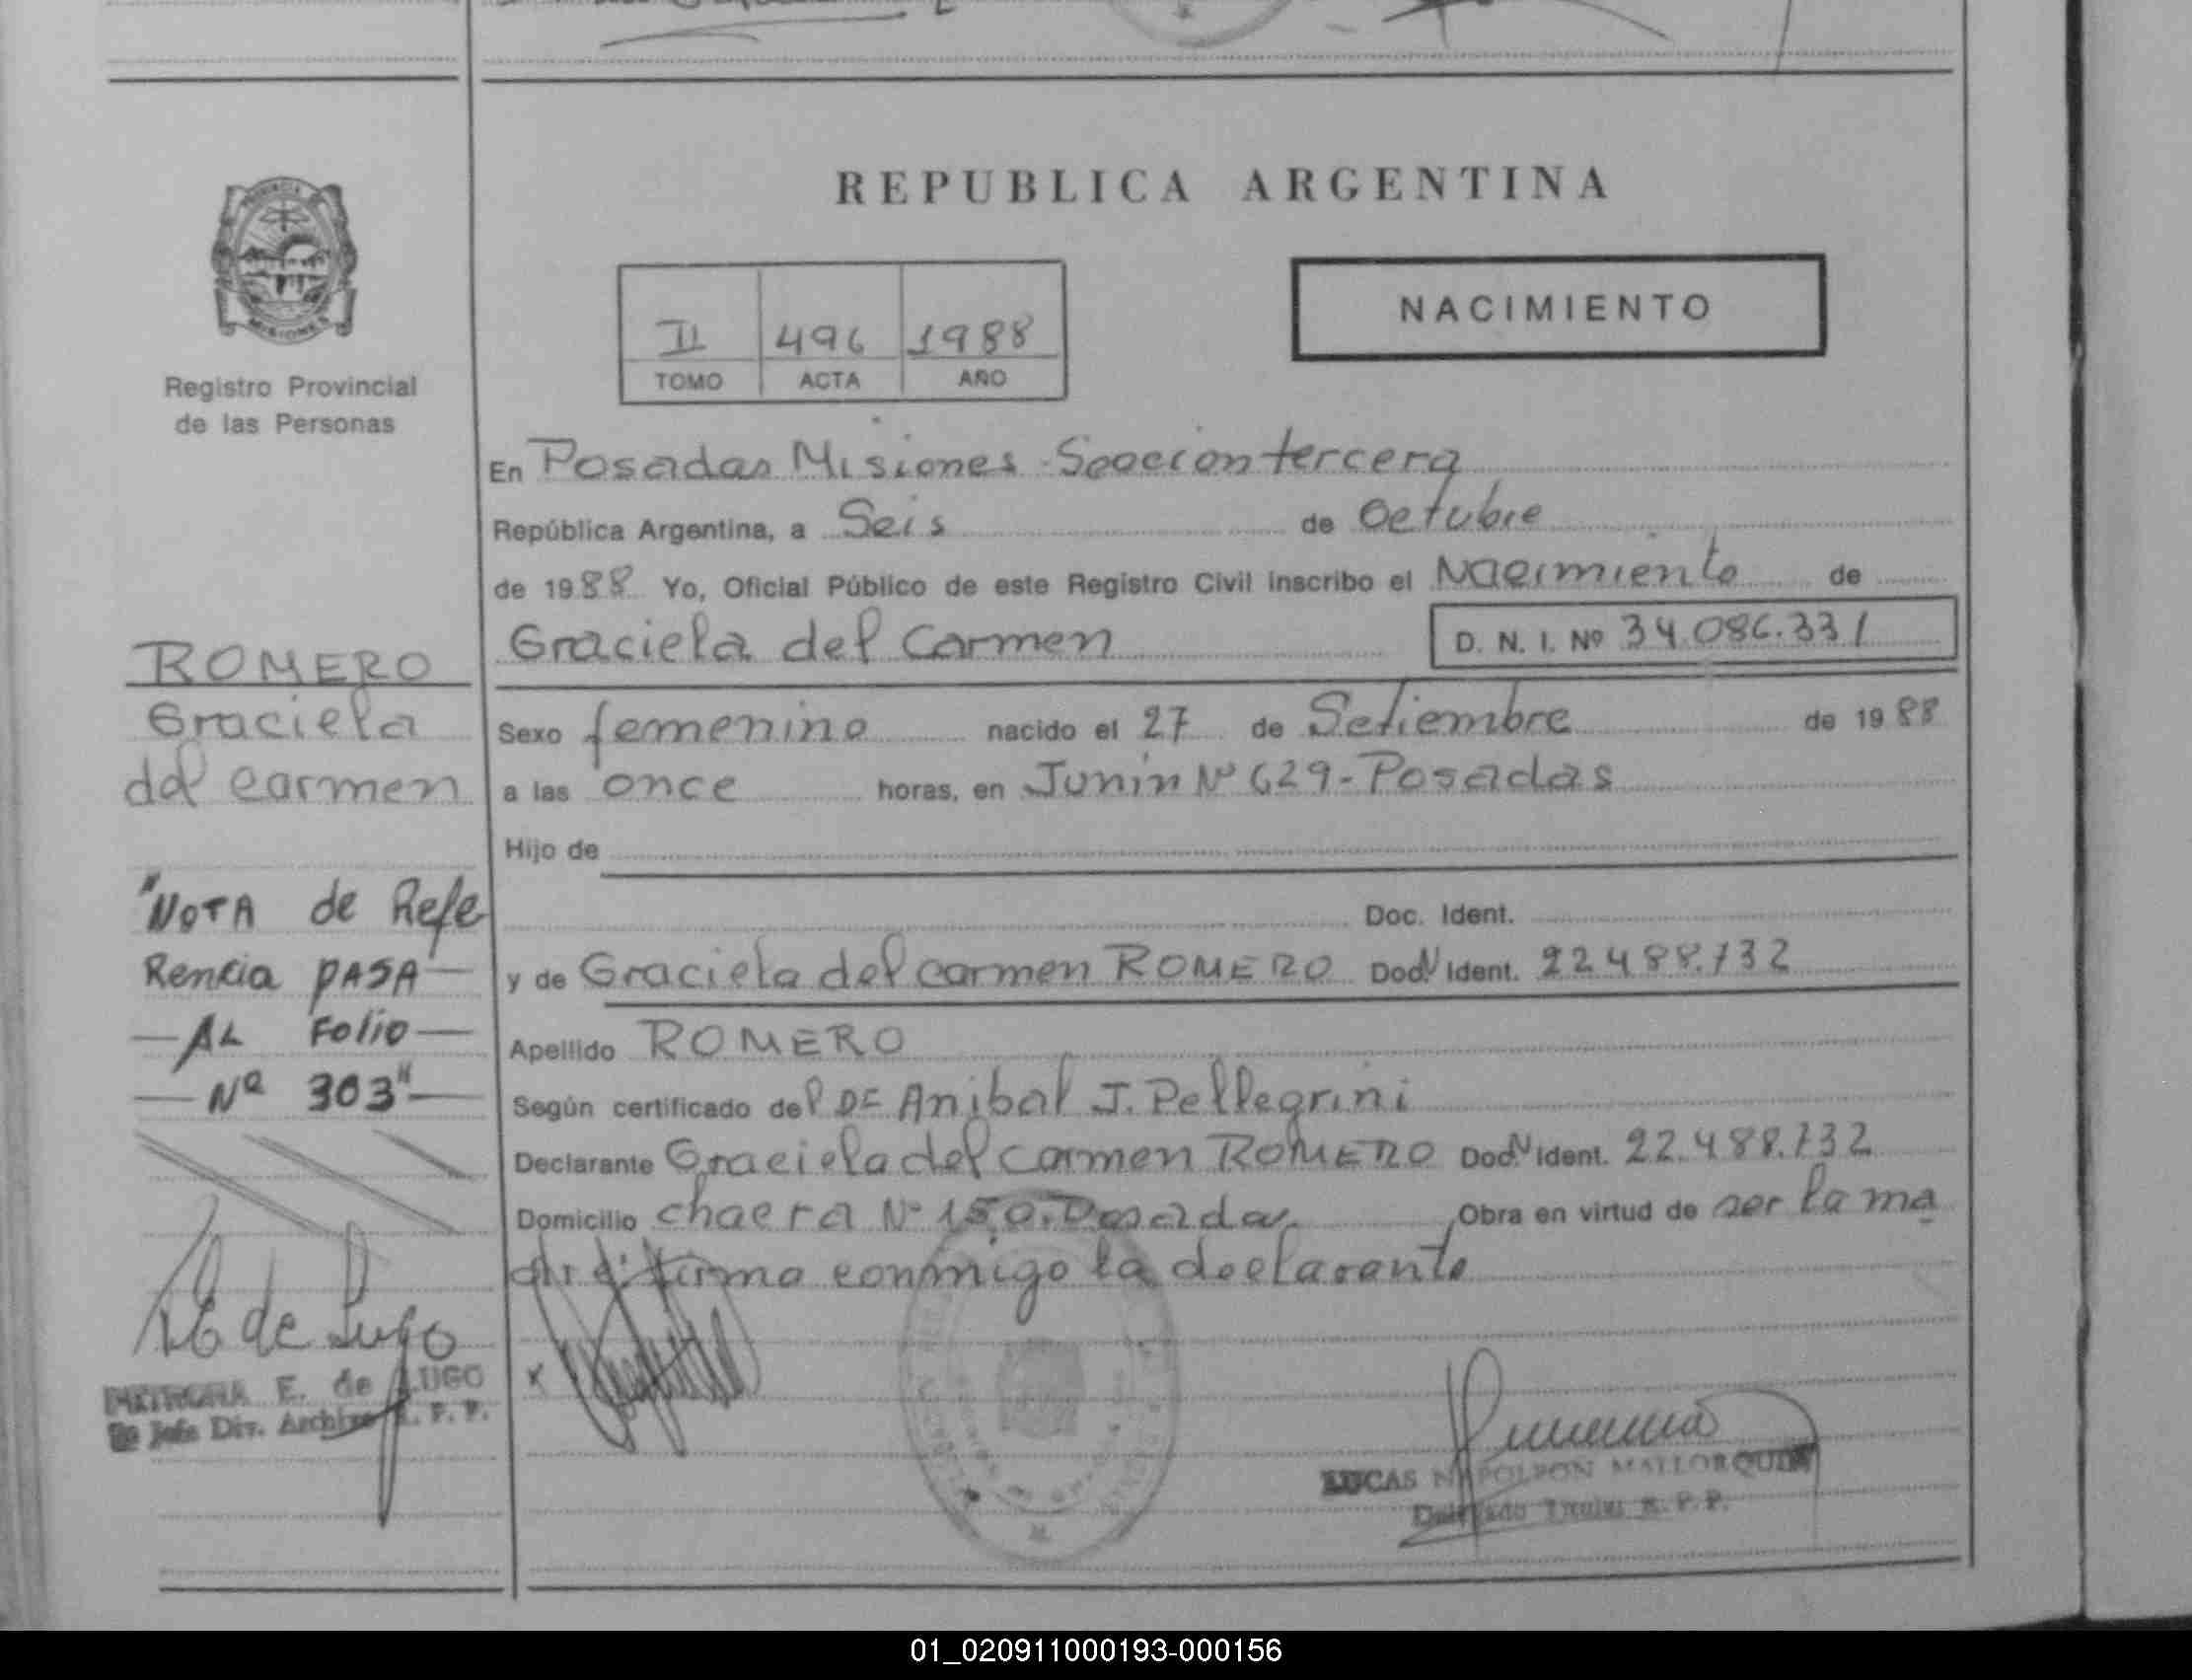 REPUBLICA ARGENTINA
NACIMIENTO
II 496 1988
TOMO ACTA AÑO
PROVINCIA
MISIONES
Registro Provincial
de las Personas
En Posadas Misiones - Seccion tercera
República Argentina, a Seis de Octubre
de 1988 Yo, Oficial Público de este Registro Civil inscribo el Nacimiento de
Graciela del Carmen D. N. I. Nº 34.086.331
Sexo femenino nacido el 27 de Setiembre de 1988
a las once horas, en Junin Nº 629-Posadas
Hijo de
Doc. Ident.
y de Graciela del carmen ROMERO Doc. N Ident. 22.488.732
Apellido ROMERO
Según certificado del Dr Anibal J. Pellegrini
Declarante Graciela del carmen ROMERO Doc. N Ident. 22.488.732
Domicilio chacra Nº 150. Posadas Obra en virtud de ser la ma
dre firma conmigo la declarante
x
LUCAS NAPOLEON MALLORQUIN
Delegado Titular R. P. P.
ROMERO
Graciela
del carmen
"NOTA de Refe
Rencia PASA —
— AL Folio —
— Nº 303" —
E. de LUGO
Jefe Div. Archivo R. P. P.
01_020911000193-000156